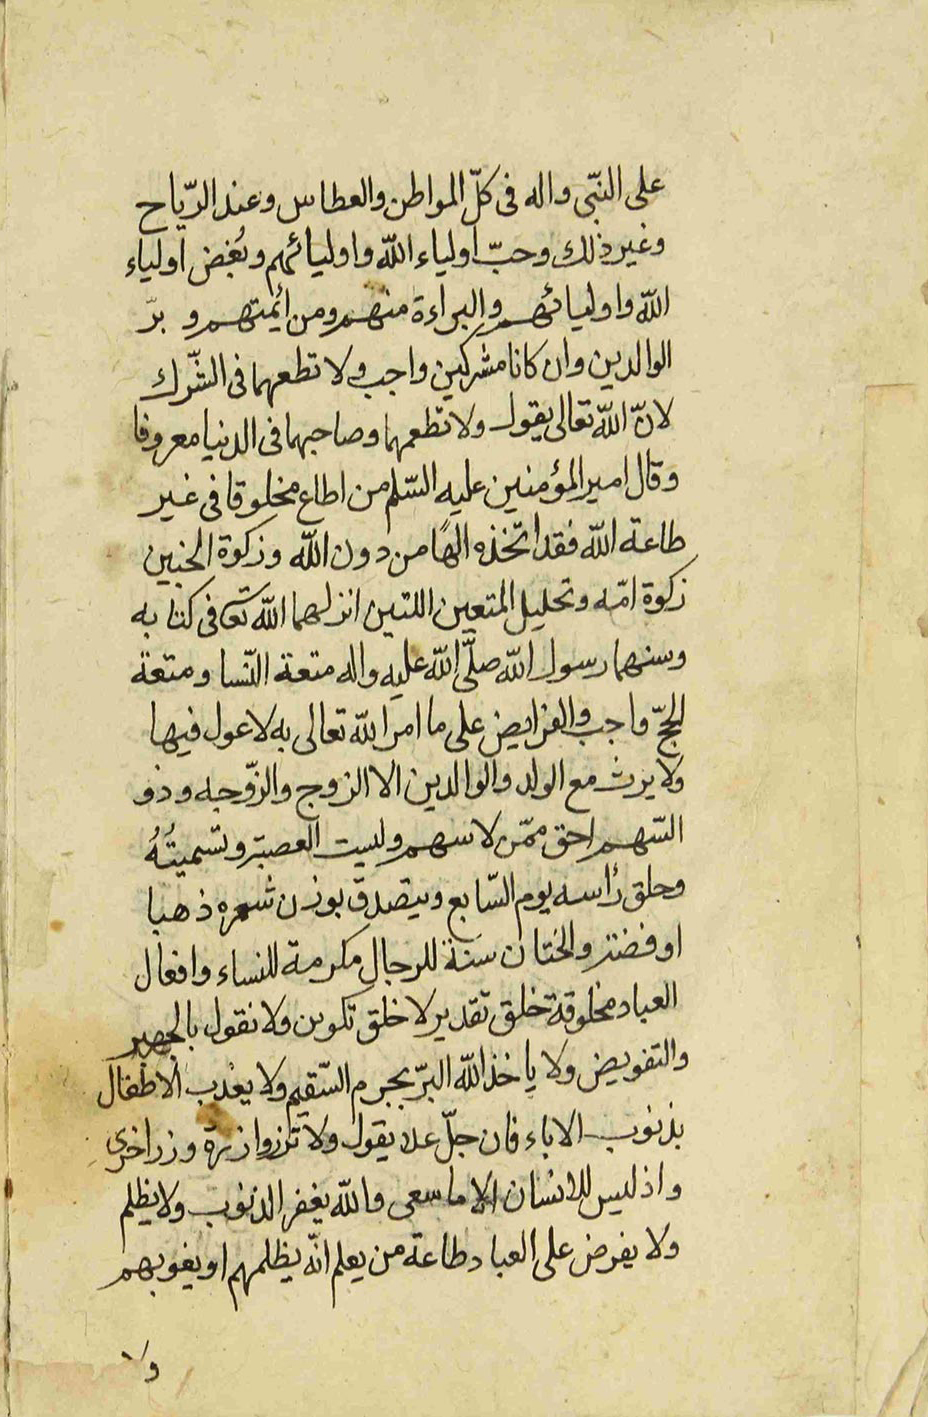 على النبّى واله فى كلّ المواطن والعطاس وعند الرّياح
وغير ذلك وحبّ اولياء اللّه واوليائهم وبُغض اولياء
اللّه واوليائهم والبراءة منهم ومن ائمتهم و برّ
الوالدين وان كانا مشركين واجب ولا تطعهما فى الشّرك
لانّ اللّه تعالى يقول ولا تطعهما وصاحبهما فى الدنيا معروفا
وقال امير المؤمنين عليه السّلم من اطاع مخلوقا فى غير
طاعة اللّه فقد اتخذه الهًا من دون اللّه وذكوة الجنين
ذكوة امّه وتحليل المتعين اللتين انزلهما اللّه تعا فى كتابه
وسنهما رسول اللّه صلّى اللّه عليه واله متعة النّسا ومتعة
الحجّ واجب والفرايض على ما امر اللّه تعالى به لا عول فيها
ولا يرث مع الولد والوالدين الا الزوج والزّوجه وذو
السّهم احق ممّن لا سهم وليست العصبة وتسميتُهُ
وحلق رأسه يوم السّابع ويتصدق بوزن شعره ذهبا
او فضة والختان سنة للرجال مكرمة للنساء وافعال
العباد مخلوقة خلق تقدير لا خلق تكوين ولا نقول بالجبر
والتفويض ولا ياخذ اللّه البرّ بجرم السّقيم ولا يعذب الاطفال
بذنوب الاباء فان جلّ علا يقول ولا تزر وازرة وزر اخرى
واذ ليس للانسان الا ما سعى واللّه يغفر الذنوب ولا يظلم
ولا يفرض على العباد طاعة من يعلم انّه يظلمهم او يغويهم
ولا